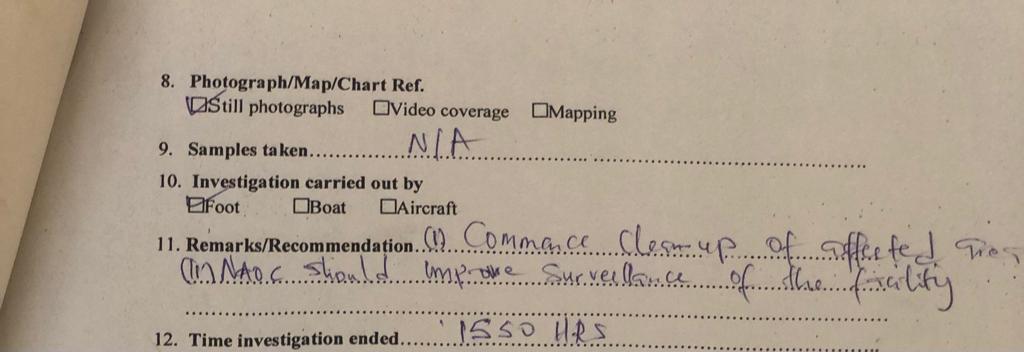 8. Photograph/Map/Chart Ref.
☑Still photographs ☐Video coverage ☐Mapping
9. Samples taken.....N/A.....
10. Investigation carried out by
☑Foot ☐Boat ☐Aircraft
11. Remarks/Recommendation..(I) Commance Clean-up of affected
(II) NAOC should improve Surveillance of the facility
12. Time investigation ended.....1550 HRS.....